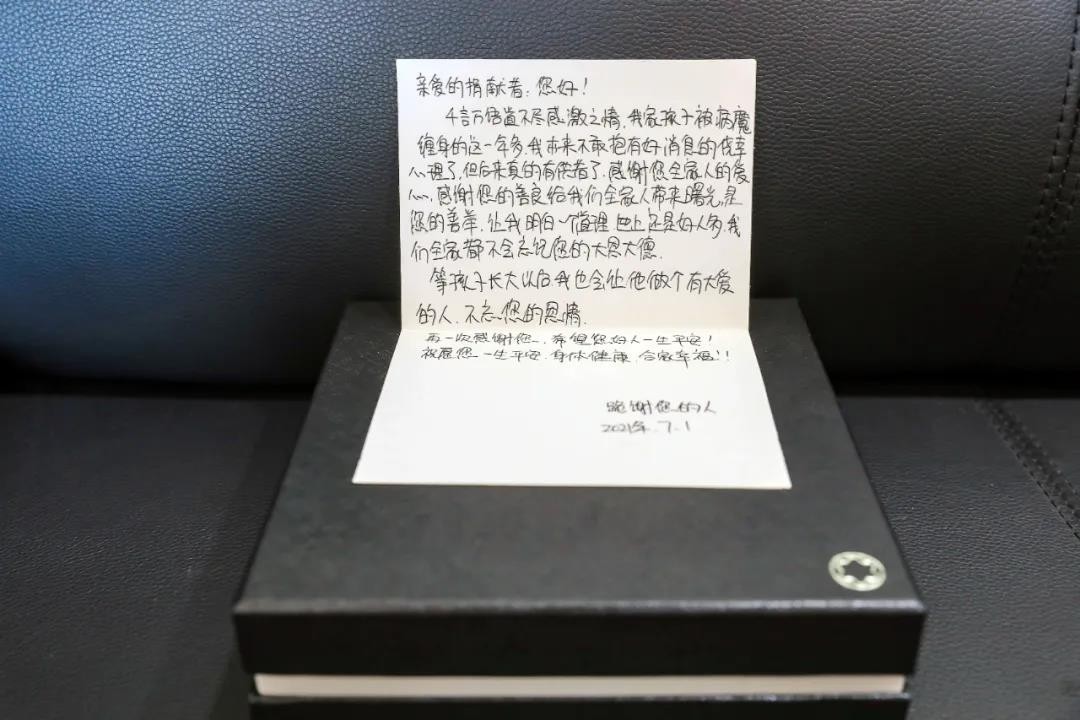 亲爱的捐献者：您好！
千言万语道不尽感激之情，我家孩子被病魔
缠身的这一年多，我本来不敢抱有好消息的侥幸
心理了，但后来真的有供者了，感谢您全家人的爱
心，感谢您的善良给我们全家人带来曙光，是
您的善举，让我明白一个道理，世上还是好人多，我
们全家都不会忘记您的大恩大德。
等孩子长大以后，我也会让他做个有大爱
的人，不忘您的恩情。
再一次感谢您，希望您好人一生平安！
祝愿您一生平安，身体健康，合家幸福！！
感谢您的人
2021年.7.1